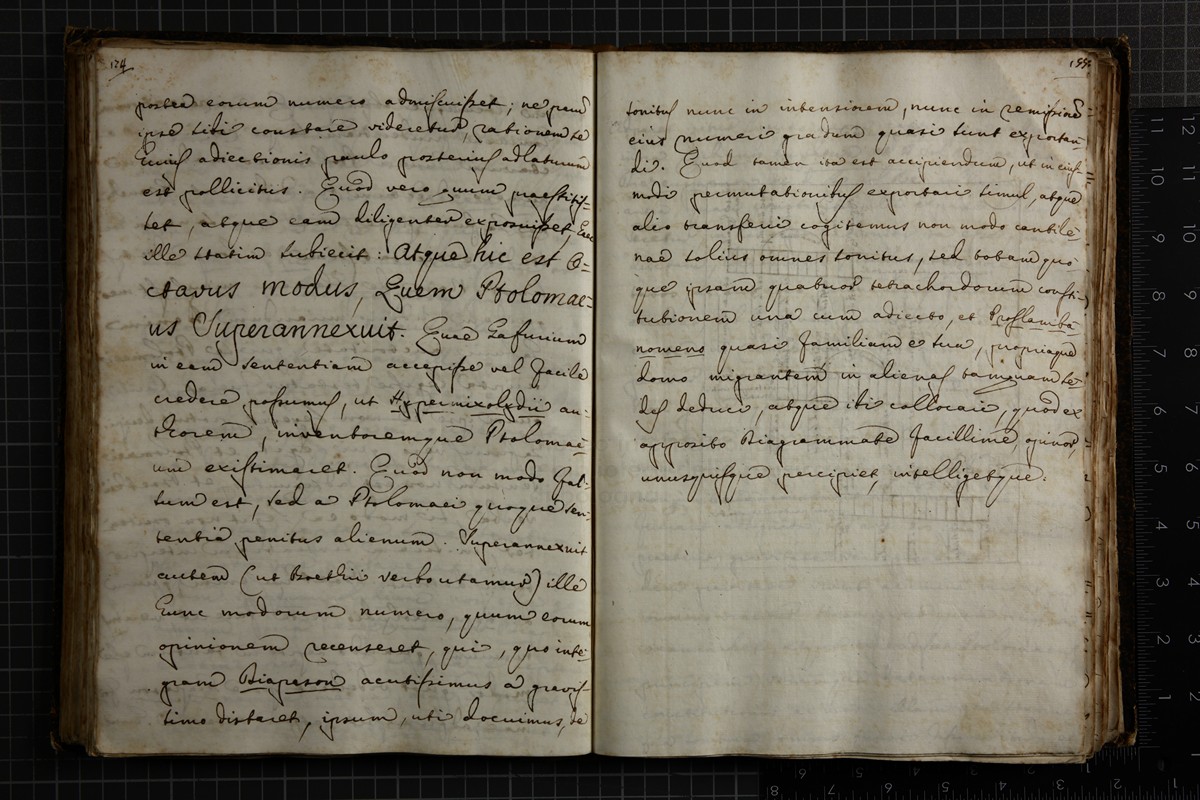 174
postea eorum numero admiscuisset; ne
ipse sibi constare videretur, rationem se
huius adiectionis paulo posterius adlaturum
est pollicitus. Quod vero quum praestitis-
set, atque eam diligenter exposuisset, haec
ille statim subiecit: Atque hic est o=
ctavus modus, quem Ptolomae=
us Superannexuit. Quae Gafurium
in eam sententiam accepisse vel facile
credere possumus, ut Hypermixolydii au-
thorem, inventoremque Ptolomae-
um existimaret. Quod non modo fal-
sum est, sed a Ptolomaei quoque sen-
tentia penitus alienum. Superannexuit
autem (ut Boethii verbo utamur) ille
hunc modorum numero, quum eorum
opinionem recenseret, qui, quo inte-
gram Diapason acutissimus a gravis-
simo distaret, ipsum, uti docuimus, de
155
sonitus nunc in intensiorem, nunc in remissiorem
eius numeri gradum quasi sunt exportan
di. Quod tamen ita est accipiendum, ut in eius-
modi permutationibus exportari simul, atque
alio transferri cogitemus non modo cantile-
nae solius omnes sonitus, sed totam quo
que ipsam quatuor tetrachordorum consti-
tutionem una cum adiecto, et Proslamba
nomeno quasi familiam e sua, propriaque
domo migrantem in alienas tamquam se-
des deduci, atque ibi collocari, quod ex
apposito Diagrammate facillime, opinor,
unusquisque percipiet, intelligetque.